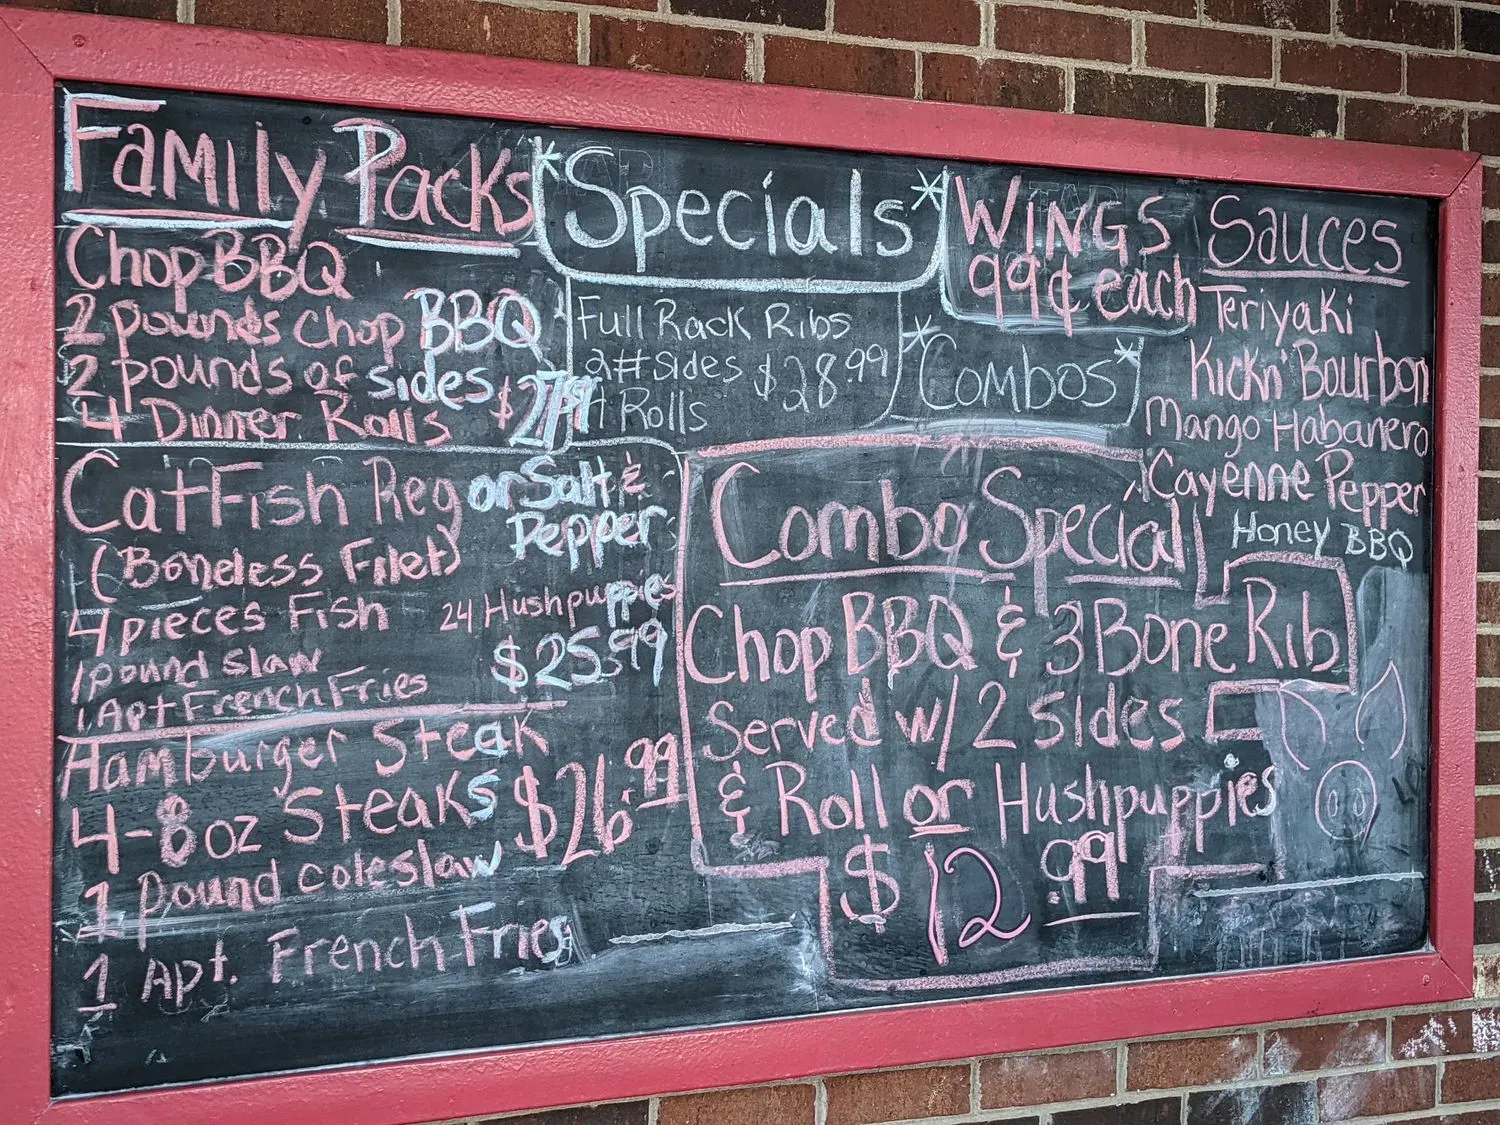 Family Packs
Chop BBQ
2 pounds chop BBQ
2 pounds of sides
4 Dinner Rolls
CatFish Reg or Salt &
Pepper
(Boneless Filet)
4 pieces Fish 24 Hushpuppies
1 pound slaw $25.99
1 Apt French Fries
Hamburger Steak
4-8oz Steaks $26.99
1 pound coleslaw
1 Apt. French Fries
*Specials*
Full Rack Ribs
2# sides $28.99
4 Rolls
WINGS
99¢ each
*Combos*
Sauces
Teriyaki
Kickn' Bourbon
Mango Habanero
Cayenne Pepper
Honey BBQ
Combo Special
Chop BBQ & 3 Bone Rib
Served w/ 2 sides
& Roll or Hushpuppies
$12.99